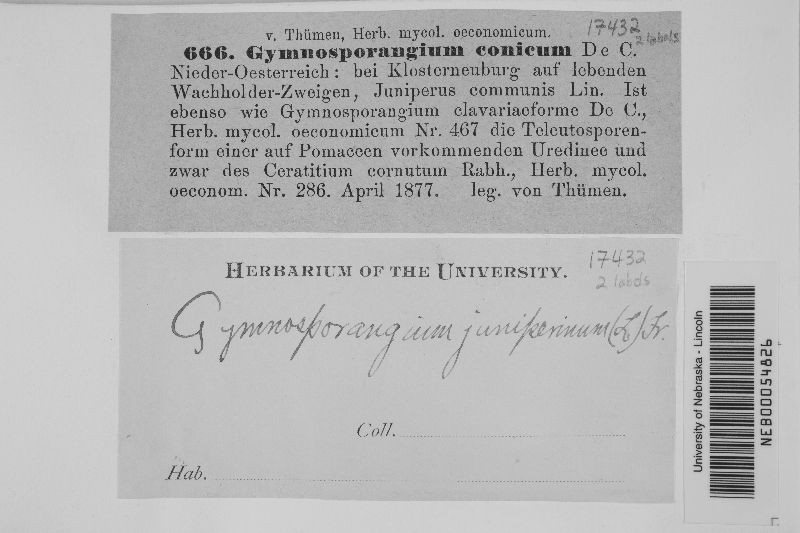 v. Thümen, Herb. mycol. oeconomicum.
17432
2 labels
666. Gymnosporangium conicum De C.
Nieder-Oesterreich: bei Klosterneuburg auf lebenden
Wachholder-Zweigen, Juniperus communis Lin. Ist
ebenso wie Gymnosporangium clavariaeforme De C.,
Herb. mycol. oeconomicum Nr. 467 die Teleutosporen-
form einer auf Pomaceen vorkommenden Uredinee und
zwar des Ceratitium cornutum Rabh., Herb. mycol.
oeconom. Nr. 286. April 1877. leg. von Thümen.
HERBARIUM OF THE UNIVERSITY.
17432
2 labels
Gymnosporangium juniperinum (L) Fr.
Coll.
Hab.
University of Nebraska - Lincoln
NEB00054826